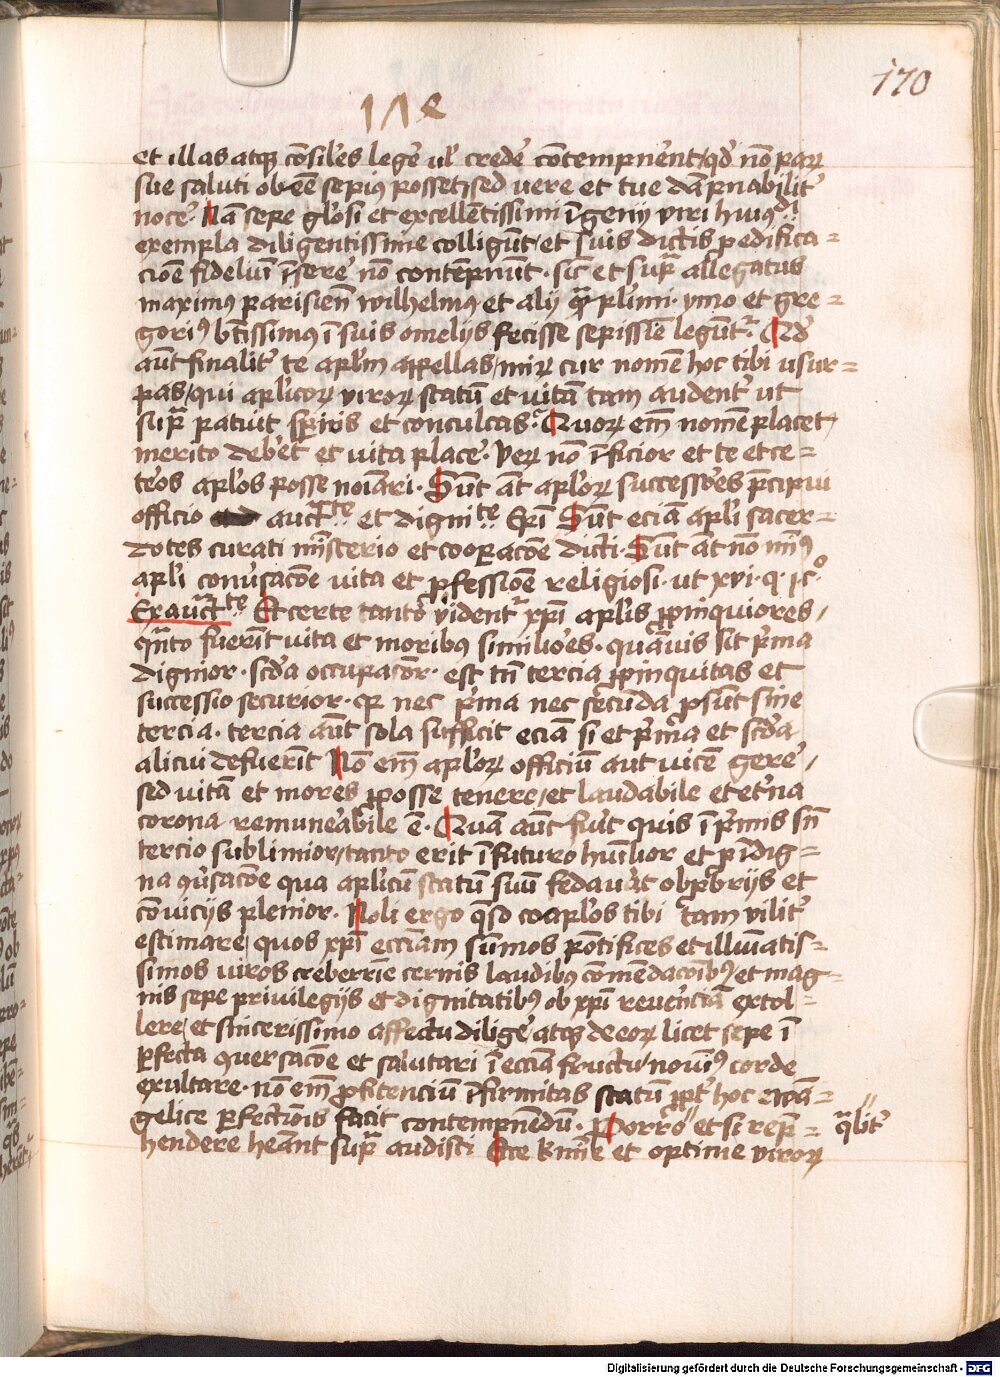 170
et illas atqꝫ cōsiles̄ leg̾e ul̾ cred̾e cōtempnēt qd̾ nō paꝝ
sue saluti obēē sepiꝰ possetꝫ sed vere et tue dāpnabilit̾
noce̾. Nā sepe gl̾osi et excellētissimi īgenij viri huiꝰdi
exempla diligentissime colligūt et suis dictis p edifica=
cōe fideliū īsere̾ nō contēpnūt. sic̄ et supͣ allegatus
maximꝰ parisien̄ wilhelmꝰ et alij qͣꝫ pl̾imi. ymo et gre=
goriꝰ bt̄issimꝰ ī suis omelijs fecisse sepissīe legūtꝛ. Qd̾
aūt finalit̾ te apl̾m appellas miꝝ cur nomē hoc tibi usur=
pas qui apl̾icoꝝ viroꝝ statū et vitā tam audent̾ ut
supͣ patuit spernis et conculcas. Quoꝝ em̄ nomē placet
merito deb̾et et vita place̾. Veꝝ nō īficior et te et ce=
te̾os apl̾os posse noīari. Sūt āt apl̾oꝝ successo̾es p̄cipui
officio auct̾te et dignite Epī Sūt eciā apl̾i sacer=
dotes curati mīsterio et cooꝑacōe dicti. Sūt āt nō minꝰ
apl̾i conu̾sacōe vita et ꝓfessiōe religiosi. ut xvi. q. ic̊.
Ex auct̾te Et certe tanto vident̾ xp̄i apl̾is ꝓpinquiores
qͣnto fuerīt vita et moribꝰ similio̾es. quāuis sit p̾ma
dignior. scd̾a occupacōr. est tn̄ tercia ꝓpinquitas et
successio securior. qꝛ nec p̾ma nec secūda ꝓsūt sine
tercia. tercia aūt sola sufficit eciā si et p̾ma et scd̾a
alicui defuerīt Nō em̄ apl̾oꝝ officiū aut vicē gere̾
sed vitā et mores posse tenere et laudabile et et̾na
corona remune̾abile ē. Quā aūt fu̾it quis ī p̾mis sn̄
tercio sublimior tanto erit ī futuro humlior et p īdig=
na cōu̾sacōe qua apl̾icū statū suū fedau̾at obprobrijs et
cōuicijs plenior. Noli ergo q̄so coapl̾os tibi tam vilit̾
estimare quos xp̄i ecc̄iam sūmos pōtifices et illumatis=
simos viros creberrīe cernis laudibꝰ cōmēdacōibꝰ et mag=
nis sepe privilegijs et dignitatibꝰ ob xp̄i reue̾nciā extol=
lere et sincerissimo affectu dilige̾ atqꝫ de eoꝝ licet sepe ī
ꝑfecta cōuersacōe et salutari ī ecc̄ia fructu corde
exultare. nō em̄ ꝓfitenciū īfirmitas statū ꝓpt̾ hoc ewā=
gelice ꝑfectiōis facit contempnēdū. Porro et si rep̄=
hendere supͣ audisti et optime viroꝝ
qͣlit̾
Digitalisierung gefördert durch die Deutsche Forschungsgemeinschaft - DFG